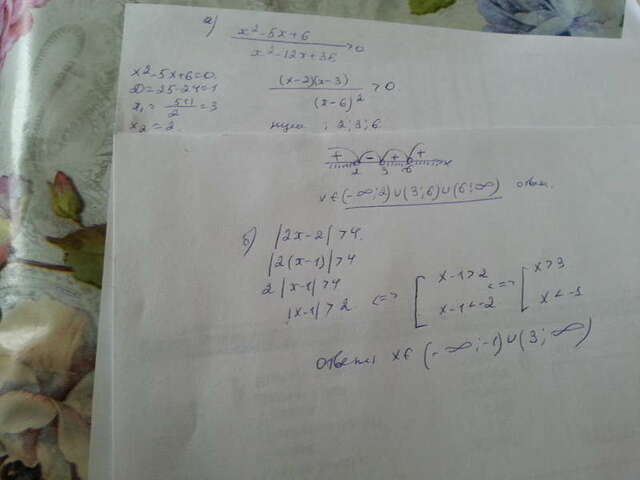 а) x²-5x+6 / x²-12x+36 >0
x²-5x+6=0.
D=25-24=1
x₁= 5+1 / 2 =3
x₂=2.
(x-2)(x-3) / (x-6)² >0
нули: 2; 3; 6.
+ - + +
2 3 6 x
x∈(-∞;2)∪(3;6)∪(6;∞) ответ.
б) |2x-2|>4.
|2(x-1)|>4
2|x-1|>4
|x-1|>2 <=> [ x-1>2 x-1<-2 <=> [ x>3 x<-1
ответ: x∈(-∞;-1)∪(3;∞)